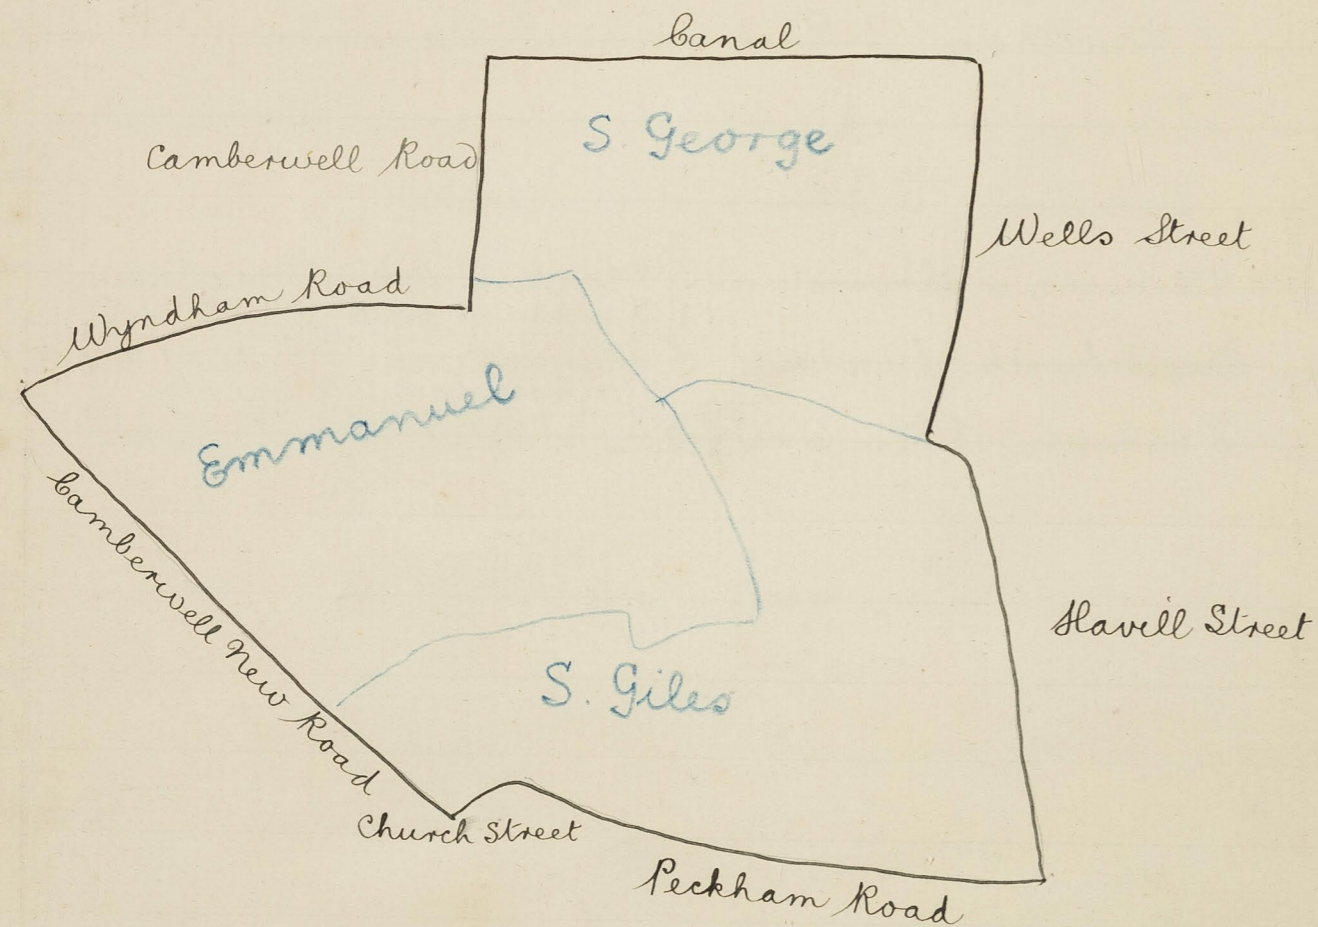 Canal
S. George
Camberwell Road
Wells Street
Wyndham Road
Emmanuel
Camberwell New Road
Havill Street
S. Giles
Church Street
Peckham Road